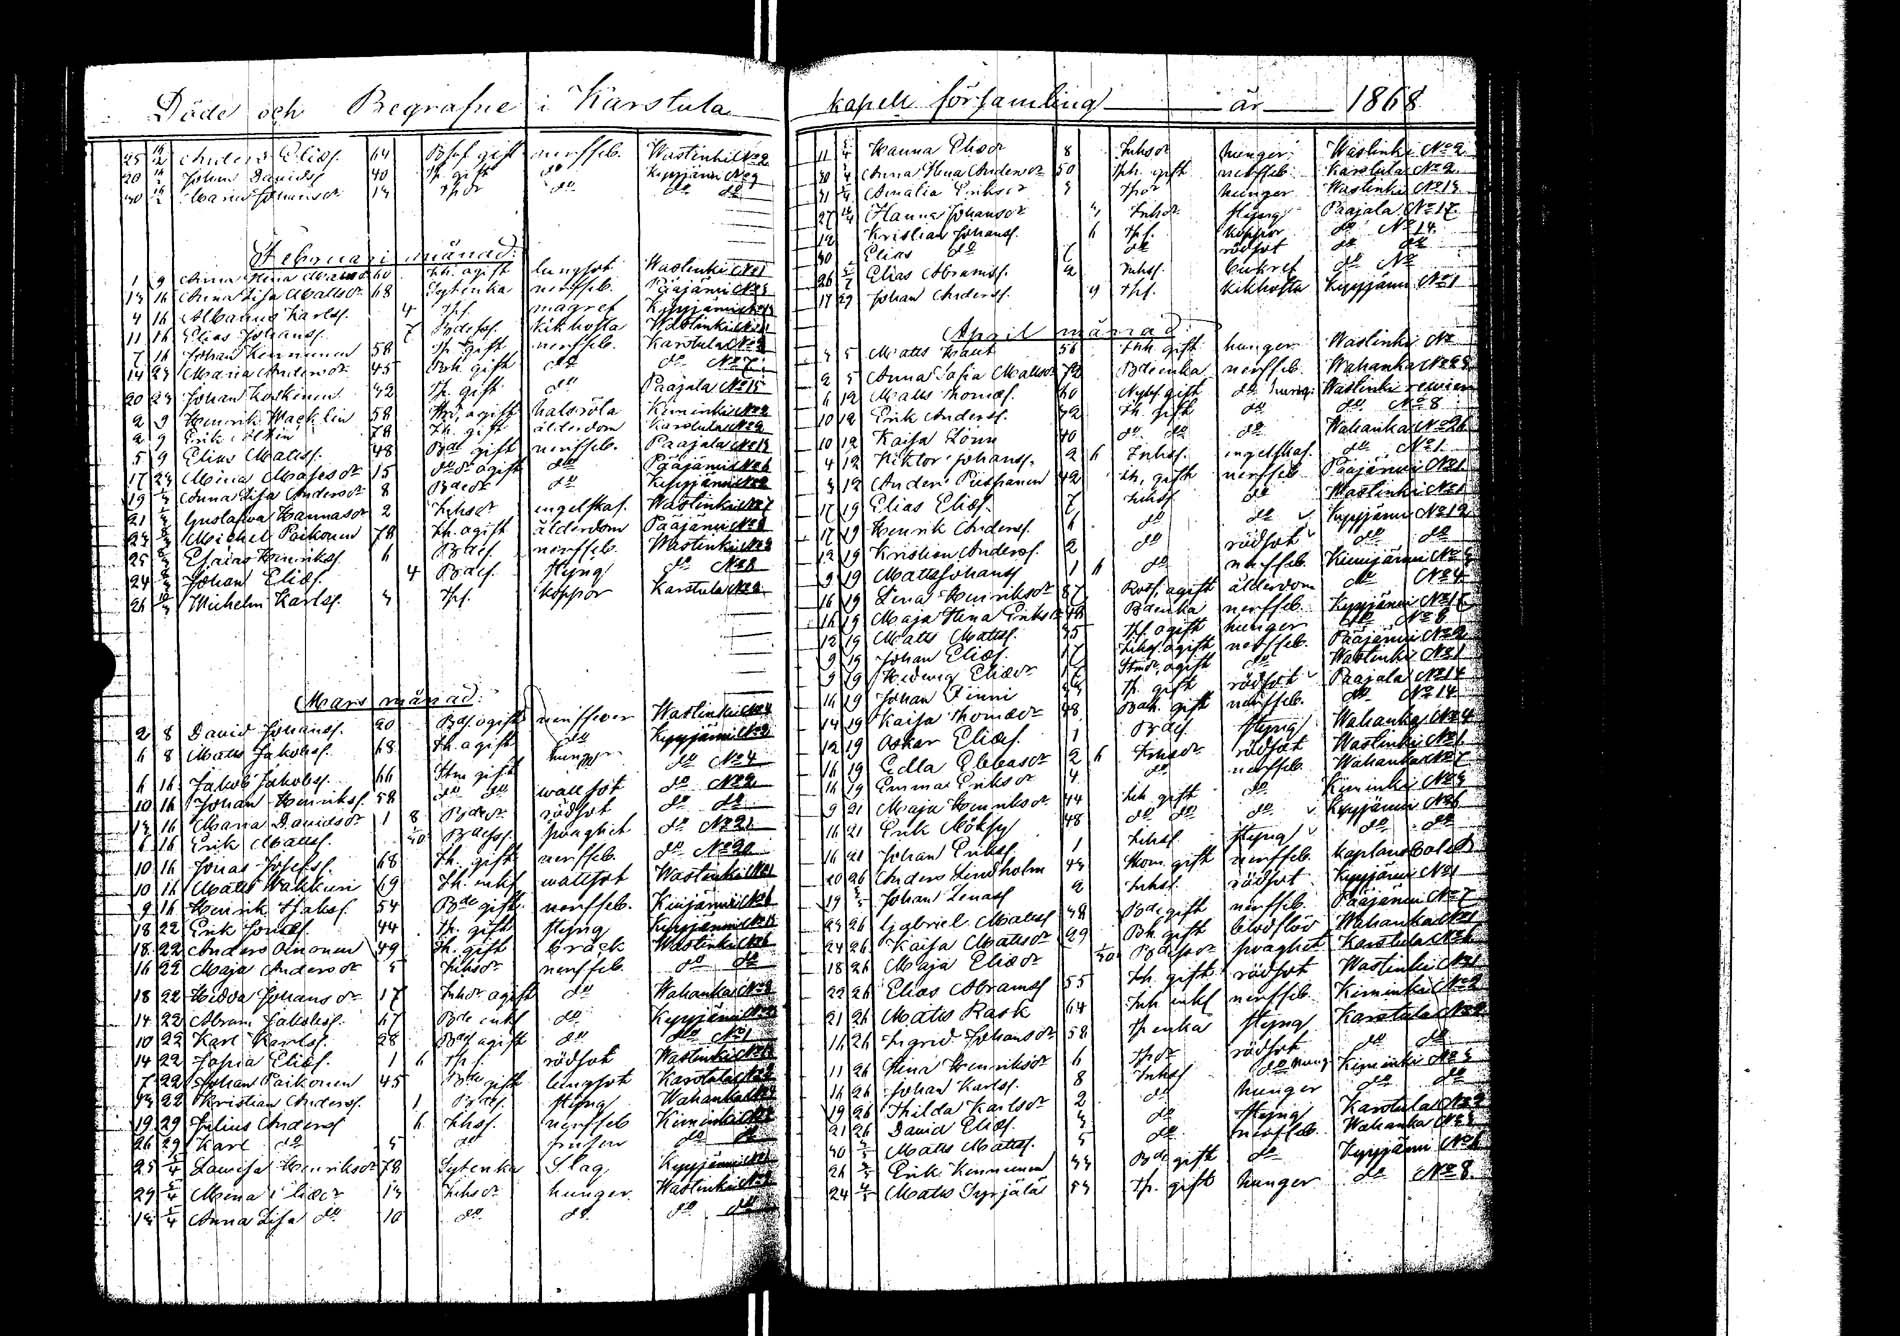 Döde och Begrafne i Karstula
25 16/2 Anders Eliæs. 64 gift nerffeb. Wastinki No 2
20 16/2 Johan Davids. 40 Th. gift do Kyyjärvi No 9
30 16/2 Maria Johansdr 13 Thdr do do do
Februari månad.
1 9 Anna Stina 60 Inh. ogift lungsot Wastinki No 1
13 16 Anna Lisa Mattsdr 68 Sytenka nerffeb. Pääjärvi No 3
4 16 Albanus Karls. 4 Thf. magref Kyyjärvi
11 16 Elias Johans. 7 Bdesf. kikhosta Wastinki
7 16 Johan Kinnunen 58 Th. gift nerffeb. Karstula No 2
14 23 Maria Andersdr 45 Bdh. gift do do No 7.
20 23 Johan Koskinen 32 Th. gift do Paajala No 15
2 9 Henrik Wacklin 58 ogift halsröta Kiminki No 2
2 9 Erik 78 Ih. gift ålderdom Karstula No 2
5 9 Elias Matts. 48 Bde gift nerffeb. Paajala No 13
17 23 Mina Majasdr 15 ogift do Pääjärvi No 6
19 Anna Lisa Andersdr 8 Bdedr do Kyyjärvi No 2
21 Gustafva Hannasdr 2 Inhsdr engelskas. Wastinki No 7
23 Michel Paikonen 78 Ih. ogift ålderdom Pääjärvi No 8
25 Esaias Henriks. 6 Bdesf. nerffeb. Wastinki No 2
24 Johan Eliæs. 4 Bdesf. styng do No 8
26 Wilhelm Karls. 3 Thf. koppor Karstula No 2
Mars månad.
2 8 David Johans. 20 Bds. ogift nerffeber Wastinki No 4
6 8 Matts Jakobs. 68 Ih. ogift do Kyyjärvi No 2
6 16 Jakob Jakobs. 66 Itm gift hunger do No 4
10 16 Johan Henriks. 58 do do wattsot do No 2
13 16 Maria Davidsdr 1 8 Bdedr rödsot do do
6 16 Erik Matts. 1/30 Bdesf. svaghet do No 21
10 16 Jonas Josefs. 68 Ih. gift nerffeb. do No 20
10 16 Matts Wakkuri 69 Ih. enkl wattsot Wastinki No 1
9 16 Henrik Isaks. 54 Bde gift nerffeb. Kiijärvi No 1
18 22 Erik Jonæs. 44 Th. gift styng Kyyjärvi No 13
18 22 Anders Oinonen 49 Ih. gift bråck Wastinki No 6
16 22 Maja Andersdr 5 Inhsdr nerffeb. do do
18 22 Hedda Johansdr 17 Inhdr ogift do Wahanka No 2
14 22 Abram Jakobs. 67 Bde enkl do Kyyjärvi
10 22 Karl Karls. 28 Bds ogift do do No 1
14 22 Sofia Eliæs. 1 6 Thf. rödsot Wastinki No 13
7 22 Johan Paikonen 45 Bde gift lungsot Karstula No 2
13 22 Kristian Anders. 1 Bdesf. styng Wahanka No 4
19 29 Julius Anders. 6 Inhsf. nerffeb Kiminki No 2
26 29 Karl do 5 do frossen do do
25 5/4 Lovisa Henriksdr 78 Sytenka Slag Kyyjärvi No 1
29 5/4 Mina Eliædr 13 Inhsdr hunger. Wastinki No 2
13 5/4 Anna Lisa do 10 do do do do
kapell församling år 1868
11 5/4 Hanna Eliædr 8 Inhsdr hunger Wastinki No 2
30 5/4 Anna Stina Andersdr 50 Inh. gift nerffeb. Karstula No 2
31 5/4 Amalia Eriksdr 3 Thdr hunger Wastinki No 13
27 12/4 Hanna Johansdr 3 Inhdr styng Paajala No 17.
12 Kristian Johans. 6 Thf. koppor do No 14.
30 Elias do 7 do rödsot do do
26 Elias Abrams. 2 Inhsf. bukref do No
17 29 Johan Anders. 9 Thf. kikhosta Kyyjärvi No 1
April månad.
3 5 Matts Kaut 56 Inh gift hunger Wastinki No
2 5 Anna Sofia Mattsdr 72 Bdeenka nerffeb. Wahanka No 23
6 12 Matts Thomæs. 60 Nyb. gift do hung. Wastinki
10 12 Erik Anders. 32 Ih. gift do do No 8
10 12 Kaisa Lönn 40 do do do Wahanka No 26
4 12 Viktor Johans. 2 6 Inhsf. engelskas. do No 1
3 12 Anders Piispanen 42 Ih. gift nerffeb. Pääjärvi No 1.
17 19 Elias Eliæs. 7 Inhsf do Wastinki No 1
17 19 Henrik Anders. 6 do do Kyyjärvi No 12
12 19 Kristian Anders. 2 do rödsot do do
9 19 Matts Johans 1 6 do nerffeb. Kiminki No 3
16 19 Lena Henriksdr 87 ogift ålderdom do No 4
16 19 Maja Stina Eriksdr 48 Bdeenka nerffeb. Kyyjärvi No 17
12 19 Matts Matts. 35 Thf. ogift hunger do No 8
9 19 Johan Eliæs. 17 Inhsf. ogift nerffeb. Pääjärvi No 2
9 19 Hedwig Eliædr 17 ogift do Wastinki No 1
16 19 Johan Finni 33 Th. gift rödsot Paajala No 14
14 19 Kaisa Thomædr 48 Bdh. gift nerffeb. do No 14
12 19 Oskar Eliæs. 1 Bdesf. styng Wahanka No 4
16 19 Edla Ebbasdr 2 6 Inhsdr rödsot Wastinki No 1.
16 19 Emma Eriksdr 4 do nerffeb. Wahanka No 7
9 21 Maja Henriksdr 44 Inh gift do Kiminki No 3
16 21 Erik Möksy 48 do do do Kyyjärvi No 6
16 21 Johan Eriks. 1 Inhsf. styng do do
20 26 Anders Lindholm 43 gift nerffeb. Kaplansbolet
19 Johan Lenas. 2 Inhsf. rödsot Kyyjärvi No 1
23 26 Gabriel Matts. 38 Bde gift nerffeb. Pääjärvi No 7
24 26 Kaisa Mattsdr 29 Bh. gift blodflöd Wahanka No 21
18 26 Maja Eliædr 1/30 svaghet Karstula No 6.
22 26 Elias Abrams. 55 Ih. gift rödsot Wastinki No 1
21 26 Matts Rask 64 Inh enkl nerffeb. Kiminki No 2
16 26 Ingrid Johansdr 58 Thenka styng Karstula No 2
11 26 Stina Henriksdr 6 Thdr rödsot do do
16 26 Johan Karls. 8 Inhsf do hung Kiminki No 3
19 26 Hilda Karlsdr 2 do hunger do do
21 26 David Eliæs. 3 do styng Karstula No 2
30 3/5 Matts Matts. 5 do nerffeb. Wahanka No 3
26 3/5 Erik Kinnunen 33 Bde gift do Kyyjärvi No 6
24 4/5 Matts Syrjälä 53 Th. gift hunger do No 8.